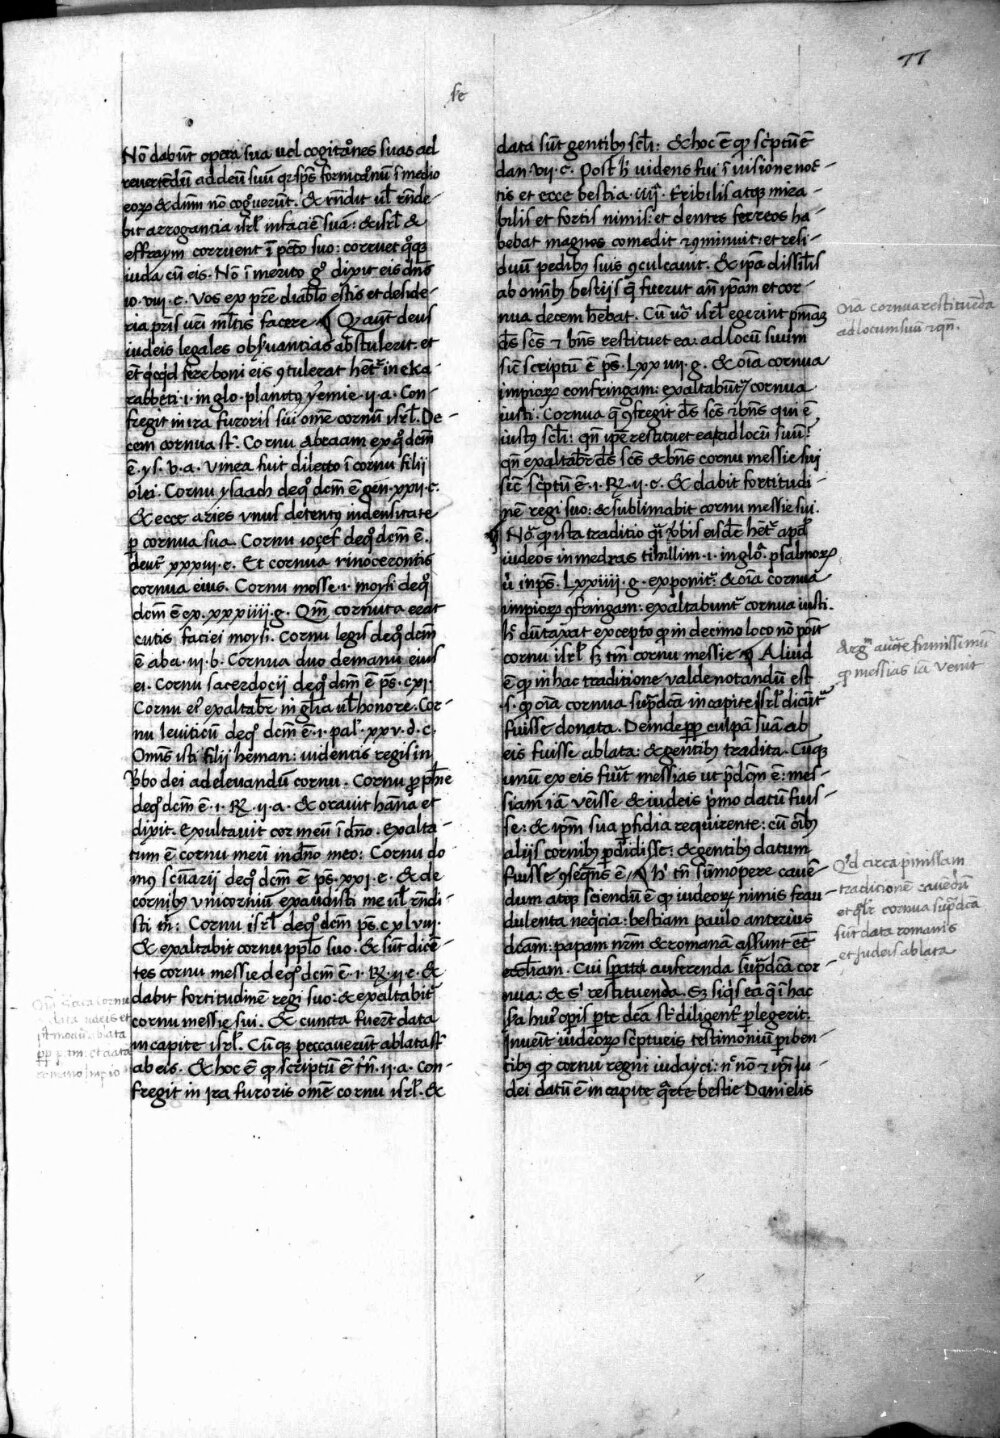 77
Nō dabūt opera sua vel cogitatōnes suas ad
revertēdū ad deū suū qr sps fornicatōnū ī medio
eoꝝ & dnm nō cogverūt. & rñdit vl rñde-
bit arrogantia isrl in faciē suā: & isrl &
effraym corruent ī pctō suo: corruet qͦqꝫ
iuda cū eis. Nō īmerito gͦ dixit eis dns
io. viii. c. Vos ex pre diablo estis et deside-
ria pris vri vultis facere ¶ Q aūt deus
iudeis legales obs̄uantias abstulerit. et
ēt qcqd fere boni eis ꝯtulerat het in eka
rabbeti .i. in glo. planctus yemie .ii. a. Con-
fregit in ira furoris sui omē cornu isrl. De-
cem cornua st. Cornu abraam ex qͦ dcm
ē. ys. v. a. Vinea fuit dilecto ī cornu filii
olei. Cornu ysaach de qͦ dcm ē gen. xxii. c.
& ecce aries unus detentus in densitate
ꝑ cornua sua. Cornu iosef de qͦ dcm ē.
deut xxxiii. c. Et cornua rinocerontis
cornua eius. Cornu mosse .i. moysi de qͦ
dcm ē ex. xxxiiii. g. Qm cornuta erat
cutis faciei moysi. Cornu legis de qͦ dcm
ē aba. iii. b. Cornua duo de manu eius
ei. Cornu sacerdocii de qͦ dcm ē ps. cxi.
Cornu eiꝰ exaltabr in glia vl honore. Cor-
nu leviticū de qͦ dcm ē .i. pal. xxv. d. c.
Omns isti filii heman: videntis regis in
vbo dei ad elevandū cornu. Cornu ꝓphie
de qͦ dcm ē .i. R. ii. a. & oravit hanna et
dixit. Exultavit cor meū ī dno. Exalta-
tum ē cornu meū in dno meo: Cornu do
mꝰ scuarii de qͦ dcm ē ps. xxi. e. & de
cornibꝰ vnicornium exaudisti me vl rndi-
sti m: Cornu isrl de qͦ dcm ps. cxlviii.
& exaltabit cornu pplo suo. & sūt dicē-
tes cornu messie de qͦ dcm ē .i. R. ii. e. &
dabit fortitudinē regi suo: & exaltabit
cornu messie sui. & cuncta fuerūt data
in capite isrl. Cū qꝫ peccaverūt ablata st
ab eis. & hoc ē qͥ scriptū ē trn. ii. a. Con-
fregit in ira furoris omē cornu isrl. &
data sūt gentibꝰ scl: & hoc ē qͥ sciptū ē
dan. vii. c. Post h videns fui ī visione noc-
tis et ecce bestia .iiii. teribilis atqꝫ mira-
bilis et fortis nimis: et dentes ferreos ha-
bebat magnos comedit ꝯminuit: et reli-
duū pedibꝰ suis ꝯculcavit. & ipa dissilis
ab omibꝰ bestiis q fuerut an ipam et cor-
nua decem hebat. Cū vͦ isrl egerint pniāꝫ
ds scs & bns restituet ea: ad locū suum
sic scriptū ē ps. Lxxiiii. g. & oia cornua
impioꝝ confringam: exaltabūtͬ cornua
iusti. Cornua q ꝯfregit ds scs & bns qui ē
iustꝰ scl: qn ipe restituet ea ad locū suū?
qn exaltabr ds scs & bns cornu messie sui
sic scptū ē .i. R. ii. e. & dabit fortitudi-
nē regi suo: & sublimabit cornu messie sui.
Noͣ qͥ ista traditio qi vbis eisdē het apd
iudeos in medras tihillim .i. in gloͣ. psalmoꝝ
v in ps. Lxxiiii. g. exponit. & oia cornua
impioꝝ ꝯfringam: exaltabunt cornua iusti.
h dūtaxat excepto qͥ in decimo loco nō poit
cornu isrl sꝫ tm cornu messie ¶ Aliud
ē qͥ in hac traditione valde notandū est
s. qͥ oia cornua supdcam in capite isrl dicūt
fuisse donata. Deinde ꝓp culpā suā ab
eis fuisse ablata: & gentibꝰ tradita. Cūqꝫ
unū ex eis fuit messias ut pdcm ē: mes-
siam iā venisse & iudeis pmo datū fuis-
se: & ipm sua pfidia requirente: cū oibꝰ
aliis cornibꝰ pdidisse: & gentibꝰ datum
fuisse ꝯseqns ē ¶ h tn sūmopere cavē-
dum atqꝫ sciendū ē qͥ iudeoꝝ nimis frau-
dulenta neqcia: bestiam paulo anterius
dcam: papam nrm & romanā assunt ēē
eccliam. Cui spata auferenda supdcā cor-
nua: & sͥ restituenda. Sꝫ siqs ea q ī hac
scda huiꝰ opis pte dcā st diligent plegerit.
inveīt iudeoꝝ scptureis testimoniū phiben-
tibꝰ qͥ cornu regni iudayci: nͦ nō & ipi iu-
dei datū ē in capite qrte bestie Danielis
Oia cornua restituēda
ad locum suū & qn.
Argm auctē firmissimū
qͥ messias iā venit
Qd circa pmissam
tradicionē cavēdū
et qlr cornua supdcā
sūt data romanis
et iudeis ablata